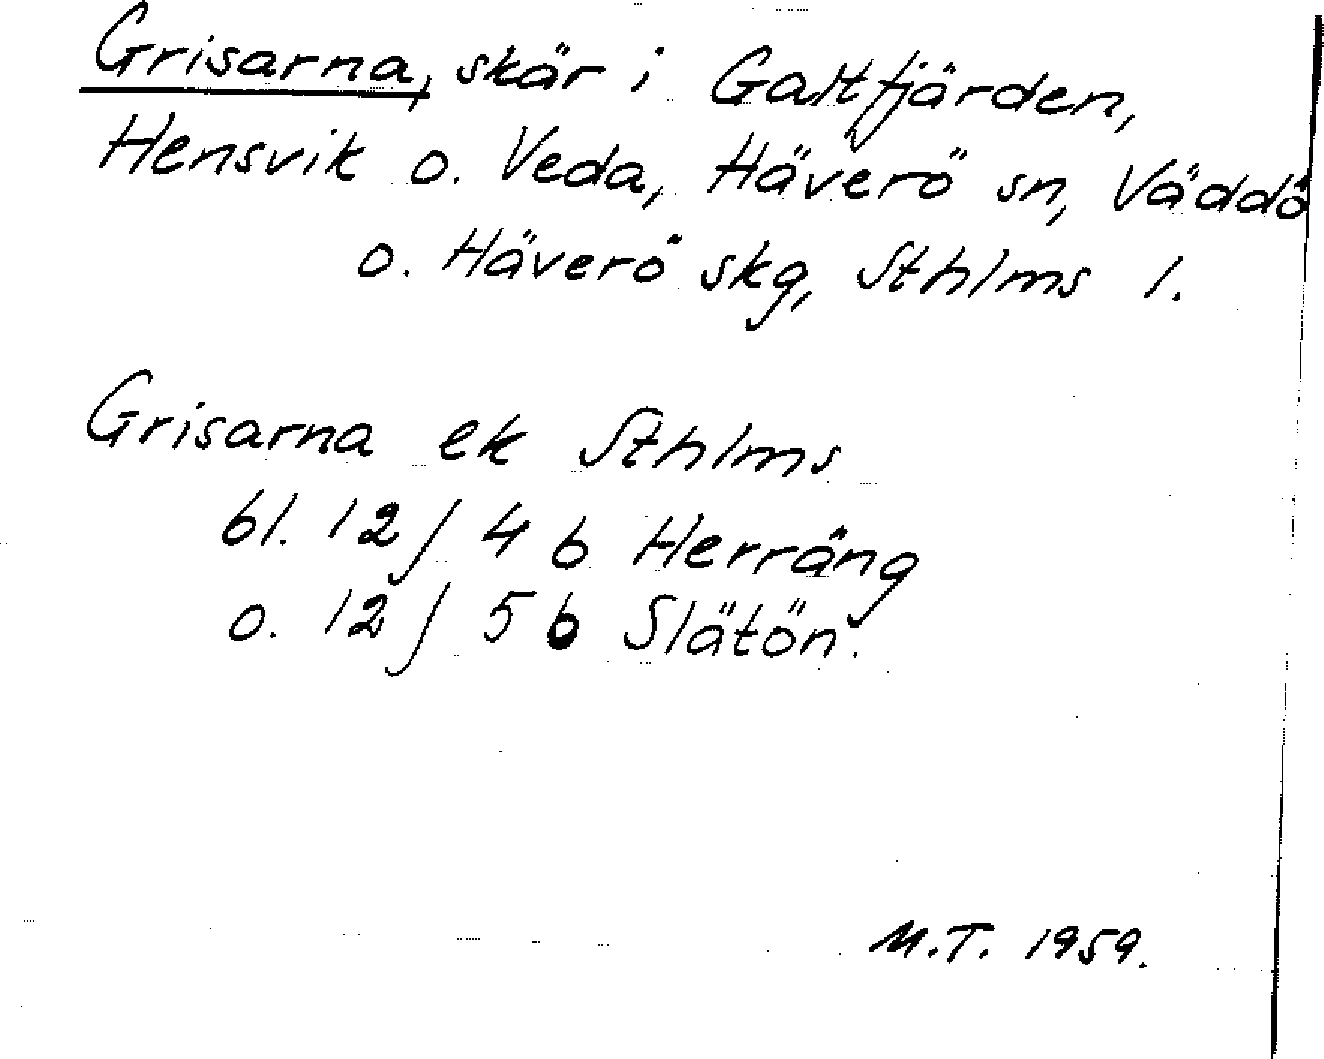 Grisarna, skär i Galtfjärden,
Hensvik o. Veda, Häverö sn, Väddö
o. Häverö skg, Sthlms l.
Grisarna ek Sthlms
bl. 12 J 4 b Herräng
o. 12 J 5 b Slätön.
M.T. 1959.